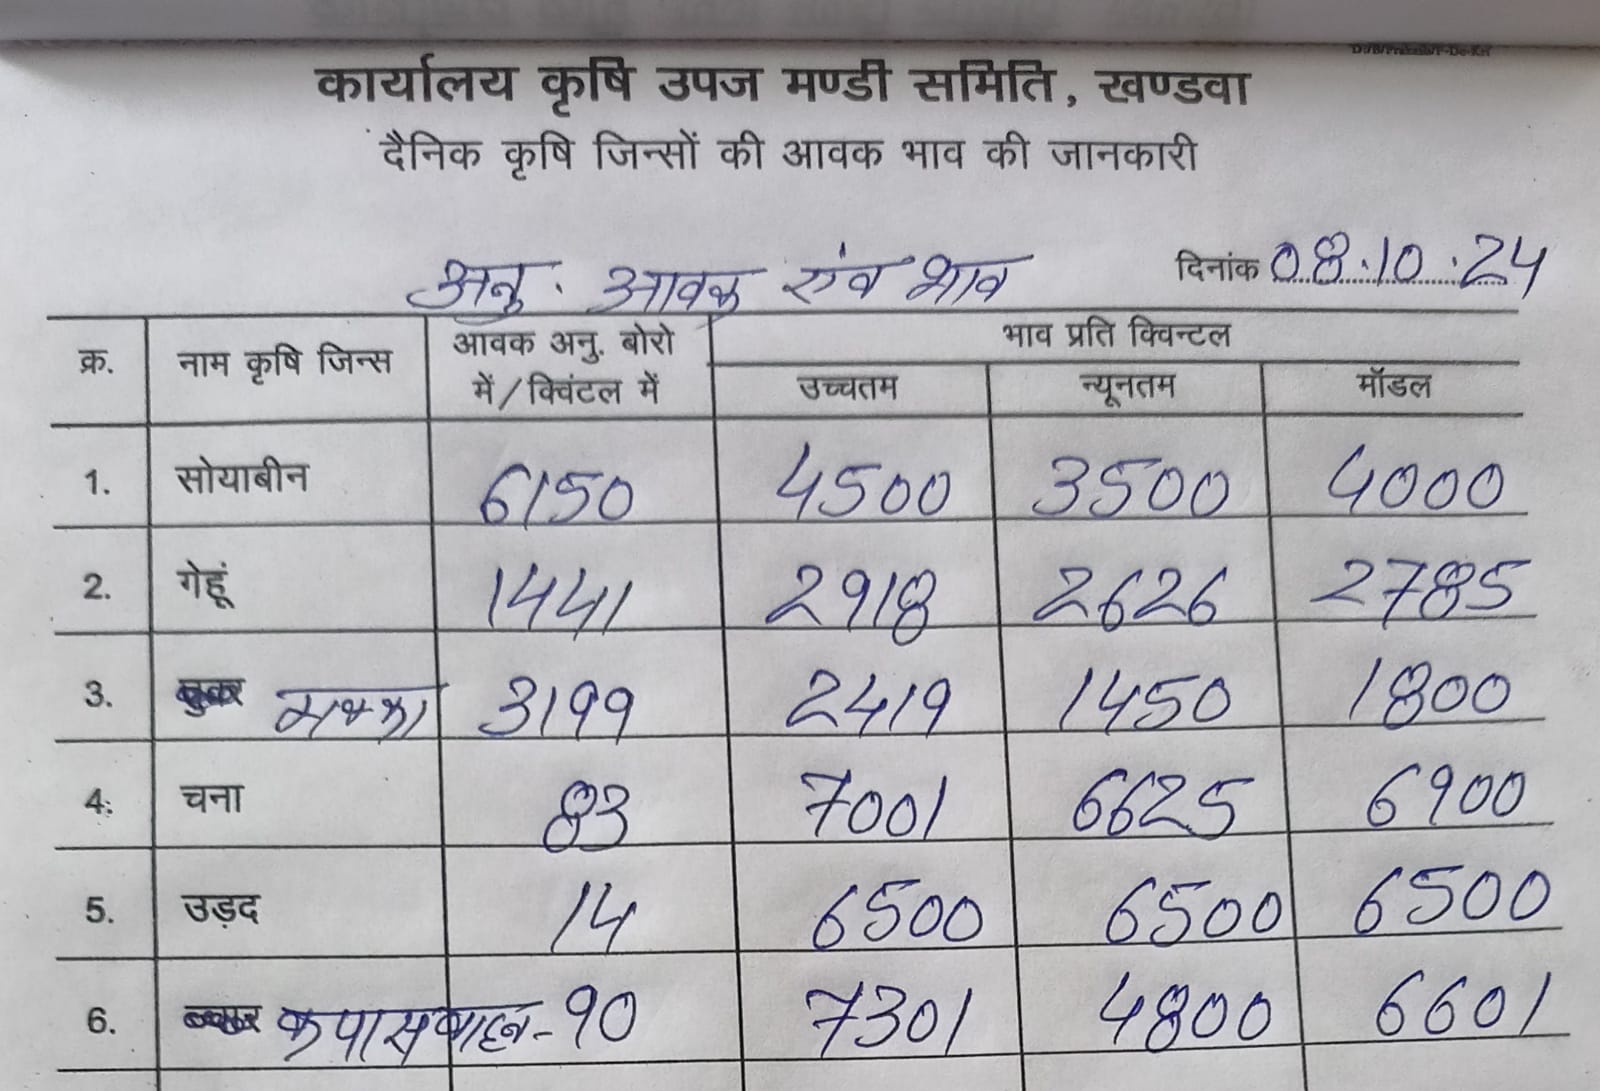 कार्यालय कृषि उपज मण्डी समिति, खण्डवा
दैनिक कृषि जिन्सों की आवक भाव की जानकारी
अनु. आवक एंव भाव दिनांक 08.10.24
क्र. नाम कृषि जिन्स आवक अनु. बोरो में/क्विंटल में भाव प्रति क्विन्टल
उच्चतम न्यूनतम मॉडल
1. सोयाबीन 6150 4500 3500 4000
2. गेहूं 1441 2918 2626 2785
3. मक्का 3199 2419 1450 1800
4. चना 83 7001 6625 6900
5. उड़द 14 6500 6500 6500
6. कपास वाहन-90 7301 4800 6601